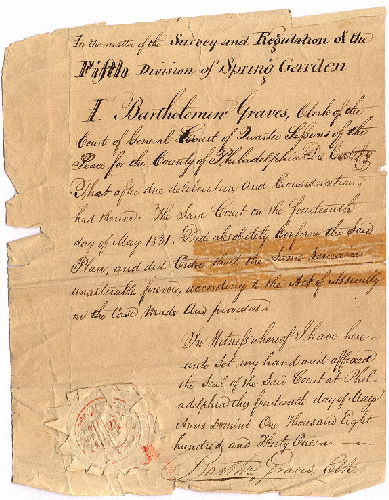 In the matter of the Survey and Regulation of the
Fifth Division of Spring Garden
I. Bartholemew Graves, Clerk of the
Court of General Court of Quarter Sessions of the
Peace for the County of Philadelphia Do Certify
That after due deliberation and
had thereon. The Said Court on the fourteenth
day of May 1831. Did absolutely Confirm the Said
Plan, and did Order that the Same Remain
unalterable forever, according to the Act of Assembly
in the Case made and provided.
In Witness whereof I have here-
unto Set my hand and affixed
the Seal of the Said Court at Phil-
adelphia this fourteenth day of May
Anno Domini One Thousand Eight
hundred and Thirty One
Barthw Graves Clk